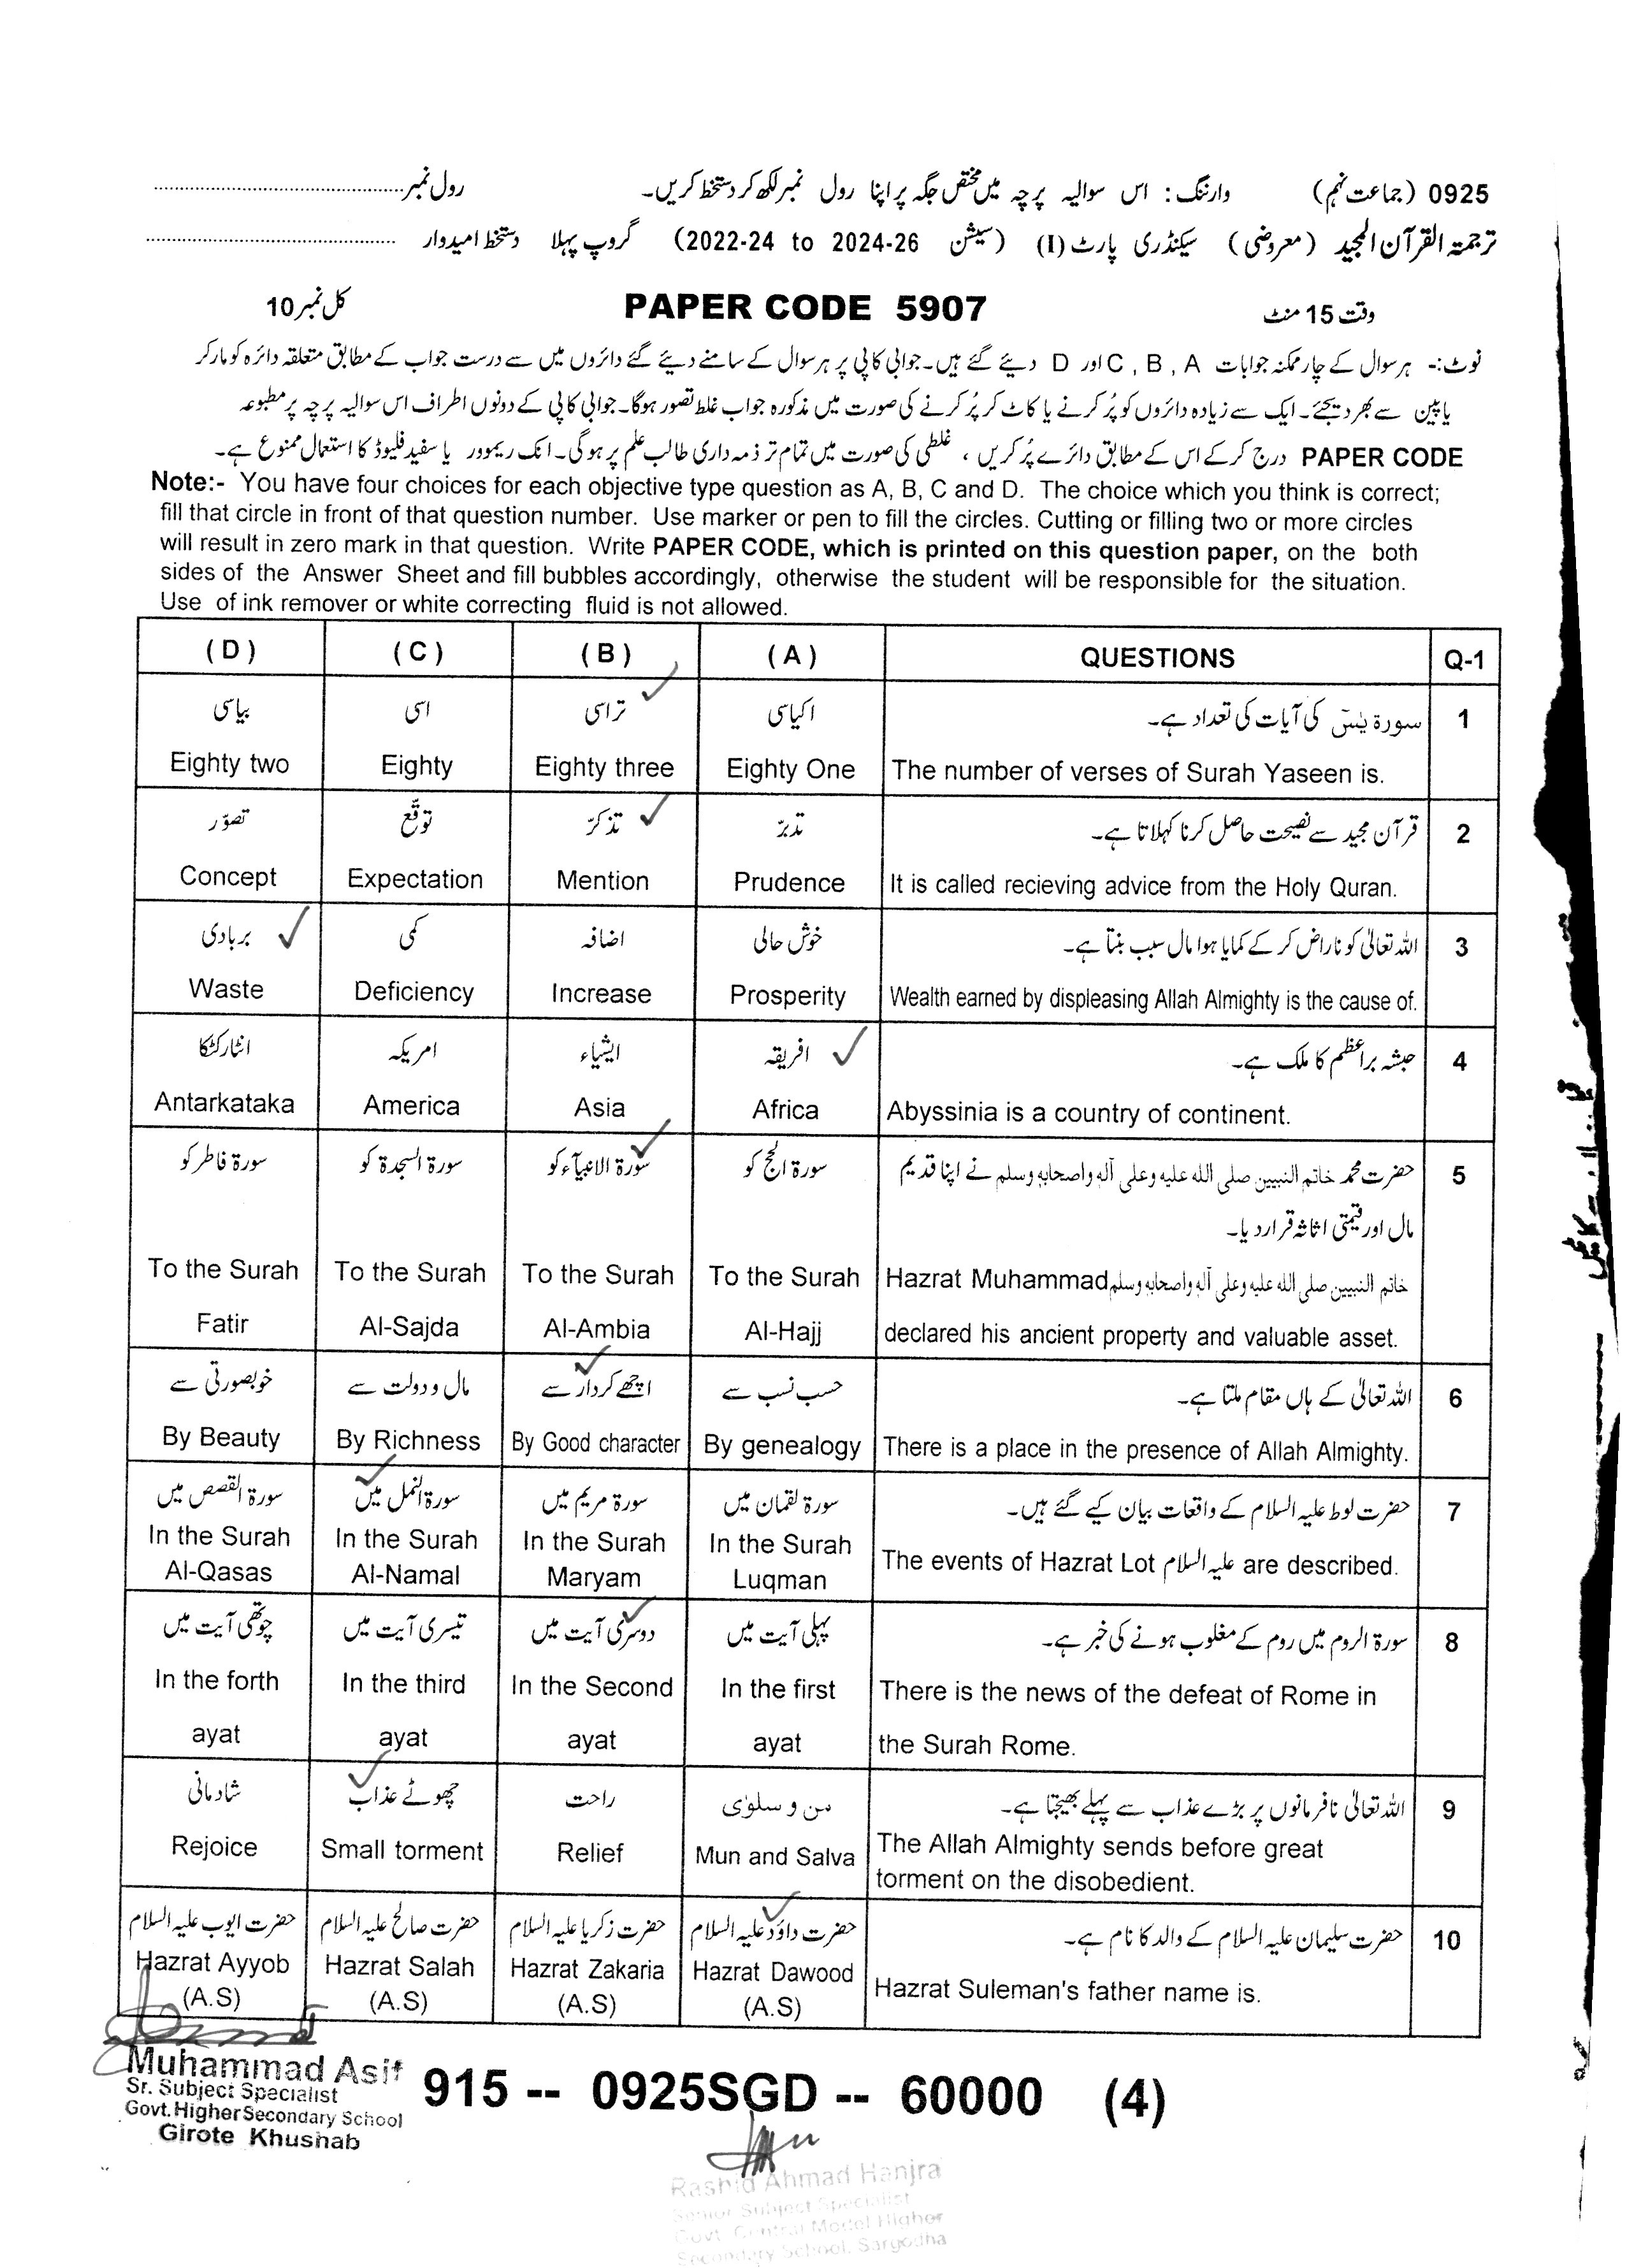 0925 (جماعت نہم) وارننگ: اس سوالیہ پرچہ میں مختص جگہ پر اپنا رول نمبر لکھ کر دستخط کریں۔ رول نمبر
ترجمۃ القرآن المجید (معروضی) سیکنڈری پارٹ (I) (سیشن 2022-24 to 2024-26) گروپ پہلا دستخط امیدوار
وقت 15 منٹ PAPER CODE 5907 کل نمبر 10
نوٹ:- ہر سوال کے چار ممکنہ جوابات A , B , C اور D دیئے گئے ہیں۔ جوابی کاپی پر ہر سوال کے سامنے دیئے گئے دائروں میں سے درست جواب کے مطابق متعلقہ دائرہ کو مارکر
یا پین سے بھر دیجئے۔ ایک سے زیادہ دائروں کو پُر کرنے یا کاٹ کر پُر کرنے کی صورت میں مذکورہ جواب غلط تصور ہوگا۔ جوابی کاپی کے دونوں اطراف اس سوالیہ پرچہ پر مطبوعہ
PAPER CODE درج کر کے اس کے مطابق دائرے پُر کریں ، غلطی کی صورت میں تمام تر ذمہ داری طالب علم پر ہوگی۔ انک ریموور یا سفید فلیوڈ کا استعمال ممنوع ہے۔
Note:- You have four choices for each objective type question as A, B, C and D. The choice which you think is correct;
fill that circle in front of that question number. Use marker or pen to fill the circles. Cutting or filling two or more circles
will result in zero mark in that question. Write PAPER CODE, which is printed on this question paper, on the both
sides of the Answer Sheet and fill bubbles accordingly, otherwise the student will be responsible for the situation.
Use of ink remover or white correcting fluid is not allowed.
(D) (C) (B) (A) QUESTIONS Q-1
1 سورۃ یٰسٓ کی آیات کی تعداد ہے۔ اکیاسی تراسی اسی بیاسی
Eighty two Eighty Eighty three Eighty One The number of verses of Surah Yaseen is.
2 قرآن مجید سے نصیحت حاصل کرنا کہلاتا ہے۔ تدبّر تذکّر توقّع تصوّر
Concept Expectation Mention Prudence It is called recieving advice from the Holy Quran.
3 اللہ تعالیٰ کو ناراض کر کے کمایا ہوا مال سبب بنتا ہے۔ خوش حالی اضافہ کمی بربادی
Waste Deficiency Increase Prosperity Wealth earned by displeasing Allah Almighty is the cause of.
4 حبشہ براعظم کا ملک ہے۔ افریقہ ایشیاء امریکہ انٹارکٹکا
Antarkataka America Asia Africa Abyssinia is a country of continent.
5 حضرت محمد خاتم النبیین صلی اللہ علیہ وعلی آلہ واصحابہ وسلم نے اپنا قدیم سورۃ الحج کو سورۃ الانبیآء کو سورۃ السجدۃ کو سورۃ فاطر کو
مال اور قیمتی اثاثہ قرار دیا۔
To the Surah To the Surah To the Surah To the Surah Hazrat Muhammad خاتم النبیین صلی اللہ علیہ وعلی آلہ واصحابہ وسلم
Fatir Al-Sajda Al-Ambia Al-Hajj declared his ancient property and valuable asset.
6 اللہ تعالیٰ کے ہاں مقام ملتا ہے۔ حسب نسب سے اچھے کردار سے مال و دولت سے خوبصورتی سے
By Beauty By Richness By Good character By genealogy There is a place in the presence of Allah Almighty.
7 حضرت لوط علیہ السلام کے واقعات بیان کیے گئے ہیں۔ سورۃ لقمان میں سورۃ مریم میں سورۃ النمل میں سورۃ القصص میں
In the Surah In the Surah In the Surah In the Surah The events of Hazrat Lot علیہ السلام are described.
Al-Qasas Al-Namal Maryam Luqman
8 سورۃ الروم میں روم کے مغلوب ہونے کی خبر ہے۔ پہلی آیت میں دوسری آیت میں تیسری آیت میں چوتھی آیت میں
In the forth In the third In the Second In the first There is the news of the defeat of Rome in
ayat ayat ayat ayat the Surah Rome.
9 اللہ تعالیٰ نافرمانوں پر بڑے عذاب سے پہلے بھیجتا ہے۔ من و سلوٰی راحت چھوٹے عذاب شادمانی
Rejoice Small torment Relief Mun and Salva The Allah Almighty sends before great
torment on the disobedient.
10 حضرت سلیمان علیہ السلام کے والد کا نام ہے۔ حضرت داؤد علیہ السلام حضرت زکریا علیہ السلام حضرت صالح علیہ السلام حضرت ایوب علیہ السلام
Hazrat Ayyob Hazrat Salah Hazrat Zakaria Hazrat Dawood Hazrat Suleman's father name is.
(A.S) (A.S) (A.S) (A.S)
Muhammad Asif
Sr. Subject Specialist
Govt. Higher Secondary School
Girote Khushab
915 -- 0925SGD -- 60000 (4)
Rashid Ahmad Hanjra
Senior Subject Specialist
Govt. Central Model Higher
Secondary School, Sargodha